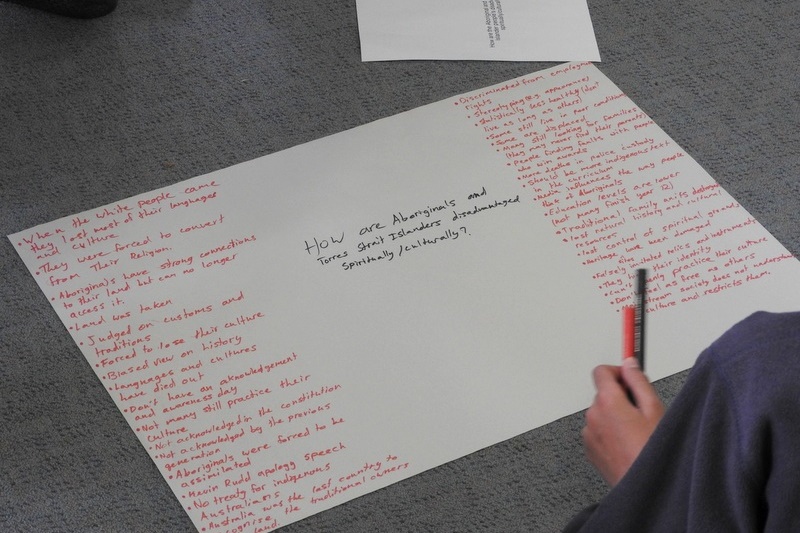 How are the Aboriginal and
When the white people came
they lost most of their languages
and culture
• They were forced to convert
from Their Religion.
• Aboriginals have strong connections
to their land but can no longer
access it.
• Land was taken
• Judged on customs and
traditions
• Forced to lose their culture
• Biased view on history
• Languages and cultures
have died out
• Don't have an acknowledgement
and awareness day
• Not many still practice their
culture
• Not acknowledged in the constitution
• Not acknowledged by the previous
generation
• Aboriginals were forced to be
assimilated
• Kevin Rudd apology speech
• No treaty for indigenous
Australians
• Australia was the last country to
the traditional owners
land.
How are Aboriginals and
Torres Strait Islanders disadvantaged
Spiritually/culturally?
• Discriminated from employment
rights
• Stereotyping (e.g. appearance)
• Statistically less healthy (don't
live as long as others)
• Some still live in poor conditions
• Some are displaced
• Many still looking for families
(they may never find their parents)
• People finding faults with people
who win awards
• More deaths in police custody
• Should be more indigenous text
in the curriculum
• Media influences the way people
think of Aboriginals
• Education levels are lower
(not many finish year 12)
• Traditional family units destroyed
• lost natural, history and cultural
resources
• lost control of spiritual grounds
• heritage have been damaged
• Falsely imitated relics and instruments
• They their identity
• Can't practice their culture
• Don't feel as free as others
stream society does not understand
culture and restricts them.